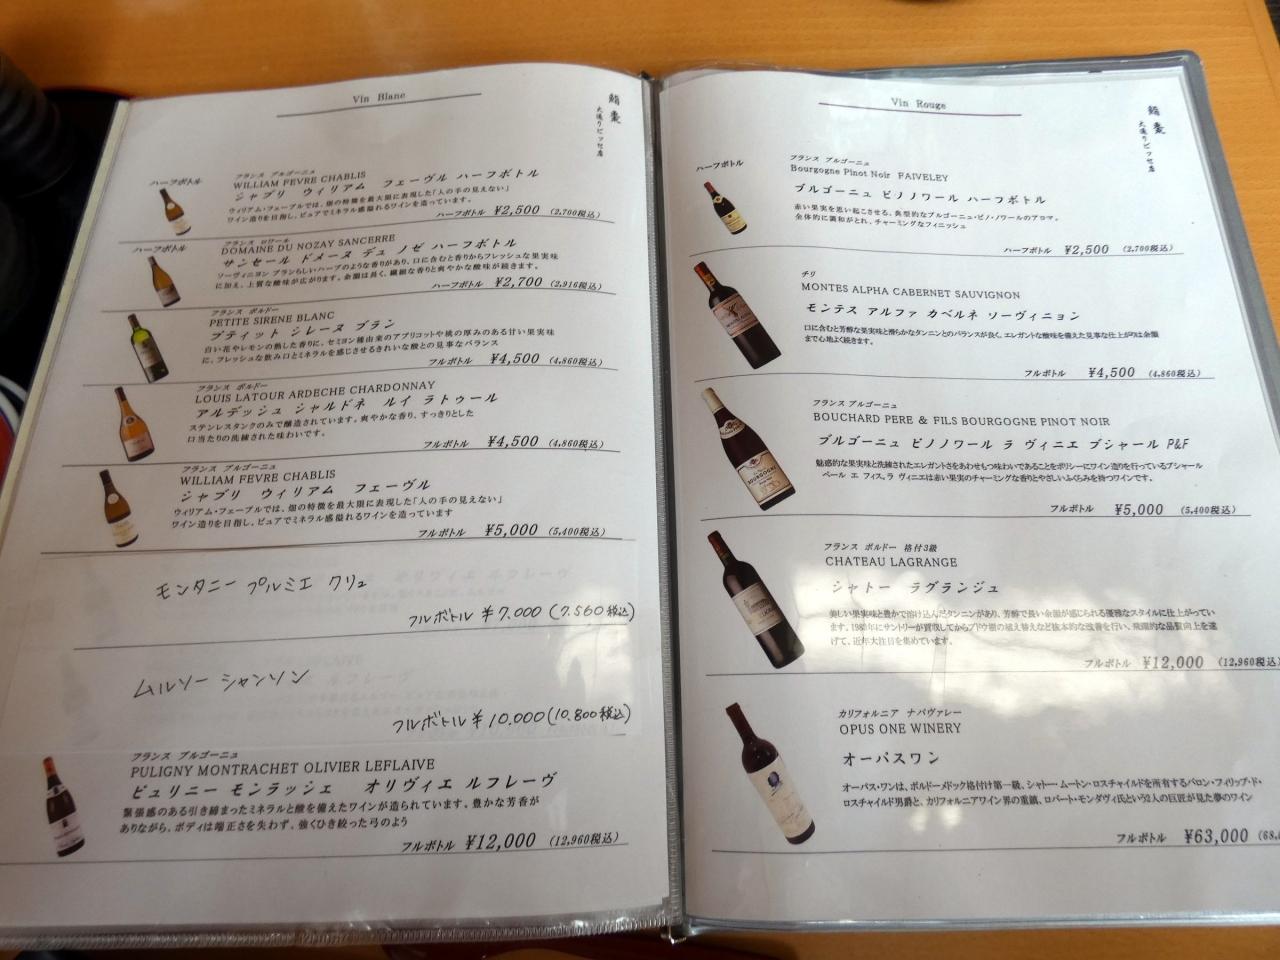 Vin Blanc
鮨 棗
大通りビッセ店
ハーフボトル
フランス ブルゴーニュ
WILLIAM FEVRE CHABLIS
シャブリ ウィリアム フェーヴル ハーフボトル
ウィリアム・フェーブルでは、畑の特徴を最大限に表現した「人の手の見えない」
ワイン造りを目指し、ピュアでミネラル感溢れるワインを造っています。
ハーフボトル ¥2,500 (2,700税込)
ハーフボトル
フランス ロワール
DOMAINE DU NOZAY SANCERRE
サンセール ドメーヌ デュ ノゼ ハーフボトル
ソーヴィニヨン ブランらしいハーブのような香りがあり、口に含むと香りからフレッシュな果実味
に加え、上質な酸味が広がります。余韻は長く、繊細な香りと爽やかな酸味が続きます。
ハーフボトル ¥2,700 (2,916税込)
フランス ボルドー
PETITE SIRENE BLANC
プティット シレーヌ ブラン
白い花やレモンの熟した香りに、セミヨン種由来のアプリコットや桃の厚みのある甘い果実味
に、フレッシュな飲み口とミネラルを感じさせるきれいな酸との見事なバランス
フルボトル ¥4,500 (4,860税込)
フランス ボルドー
LOUIS LATOUR ARDECHE CHARDONNAY
アルデッシュ シャルドネ ルイ ラトゥール
ステンレスタンクのみで醸造されています。爽やかな香り、すっきりとした
口当たりの洗練された味わいです。
フルボトル ¥4,500 (4,860税込)
フランス ブルゴーニュ
WILLIAM FEVRE CHABLIS
シャブリ ウィリアム フェーヴル
ウィリアム・フェーブルでは、畑の特徴を最大限に表現した「人の手の見えない」
ワイン造りを目指し、ピュアでミネラル感溢れるワインを造っています
フルボトル ¥5,000 (5,400税込)
モンタニー プルミエ クリュ
フルボトル ¥7,000 (7,560税込)
ムルソー シャンソン
フルボトル ¥10,000 (10,800税込)
フランス ブルゴーニュ
PULIGNY MONTRACHET OLIVIER LEFLAIVE
ピュリニー モンラッシェ オリヴィエ ルフレーヴ
緊張感のある引き締まったミネラルと酸を備えたワインが造られています。豊かな芳香が
ありながら、ボディは端正さを失わず、強くひき絞った弓のよう
フルボトル ¥12,000 (12,960税込)
Vin Rouge
鮨 棗
大通りビッセ店
ハーフボトル
フランス ブルゴーニュ
Bourgogne Pinot Noir FAIVELEY
ブルゴーニュ ピノノワール ハーフボトル
赤い果実を思い起こさせる、典型的なブルゴーニュ・ピノ・ノワールのアロマ。
全体的に調和がとれ、チャーミングなフィニッシュ
ハーフボトル ¥2,500 (2,700税込)
チリ
MONTES ALPHA CABERNET SAUVIGNON
モンテス アルファ カベルネ ソーヴィニョン
口に含むと芳醇な果実味と滑らかなタンニンとのバランスが良く、エレガントな酸味を備えた見事な仕上がりは余韻
まで心地よく続きます。
フルボトル ¥4,500 (4,860税込)
フランス ブルゴーニュ
BOUCHARD PERE & FILS BOURGOGNE PINOT NOIR
ブルゴーニュ ピノノワール ラ ヴィニエ ブシャール P&F
魅惑的な果実味と洗練されたエレガントさをあわせもつ味わいであることをポリシーにワイン造りを行っているブシャール
ペール エ フィス。ラ ヴィニエは赤い果実のチャーミングな香りとやさしいふくらみを持つワインです。
フルボトル ¥5,000 (5,400税込)
フランス ボルドー 格付3級
CHATEAU LAGRANGE
シャトー ラグランジュ
美しい果実味と豊かで溶け込んだタンニンがあり、芳醇で長い余韻が感じられる優雅なスタイルに仕上がってい
ます。1983年にサントリーが買収してからブドウ樹の植え替えなど抜本的な改善を行い、飛躍的な品質向上を遂
げて、近年大注目を集めています。
フルボトル ¥12,000 (12,960税込)
カリフォルニア ナパヴァレー
OPUS ONE WINERY
オーパスワン
オーパス・ワンは、ボルドー・メドック格付け第一級、シャトー ムートン・ロスチャイルドを所有するバロン・フィリップ・ド・
ロスチャイルド男爵と、カリフォルニアワイン界の重鎮、ロバート・モンダヴィ氏という2人の巨匠が見た夢のワイン
フルボトル ¥63,000 (68,